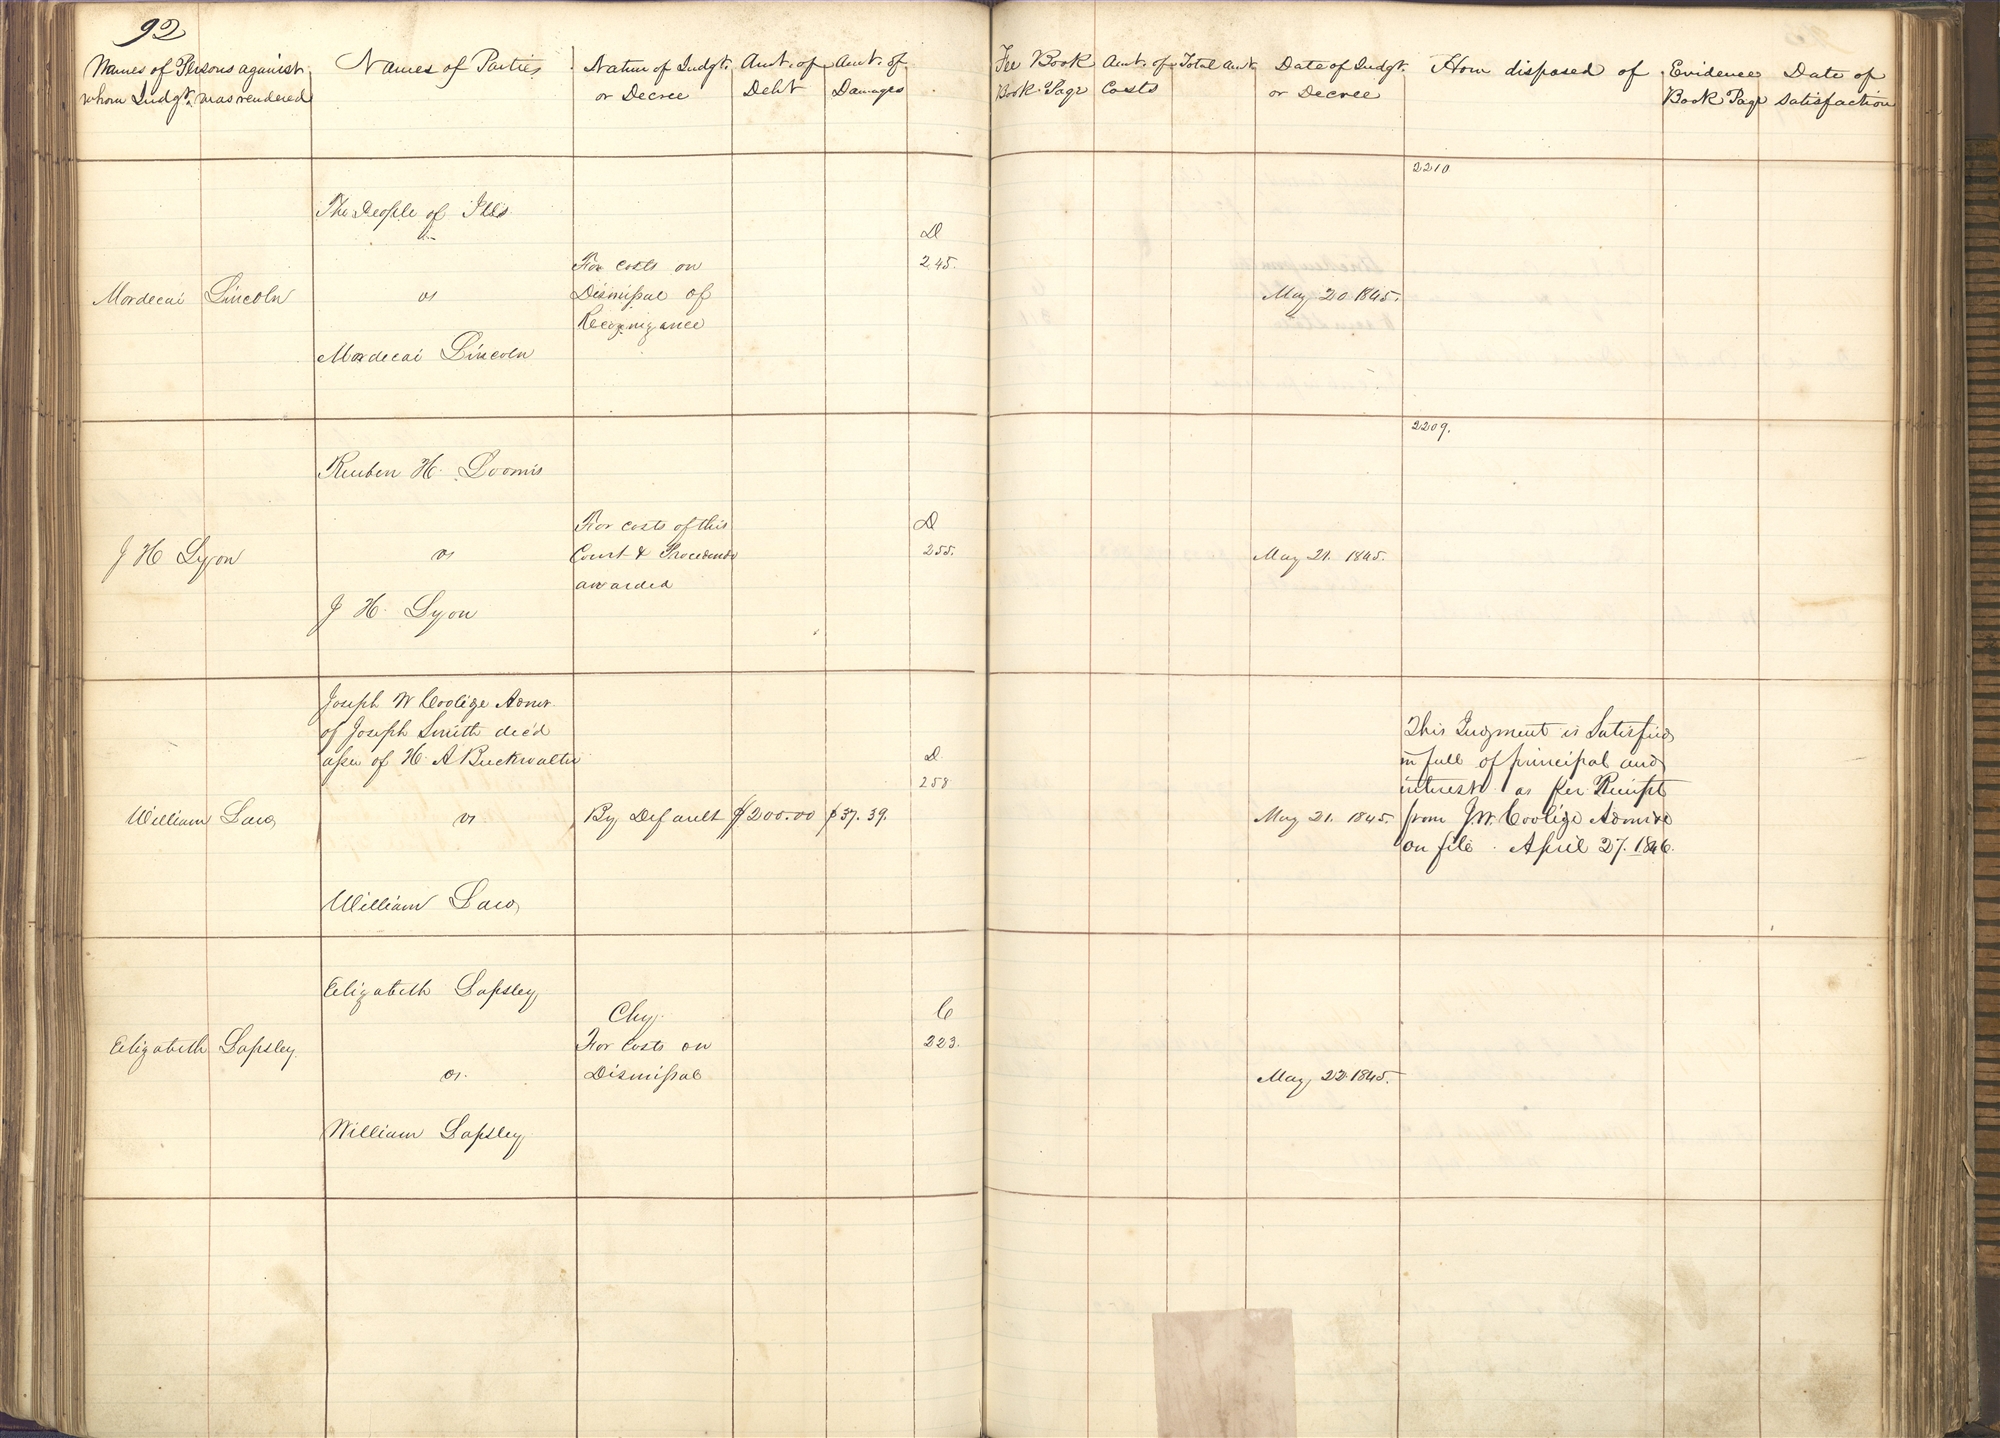 92
Names of Persons against
whom Judgt. was rendered
Names of Parties
Nature of Judgt.
or Decree
Amt. of
Debt
Amt. of
Damages
Fee Book
Book. Page
Amt. of
Costs
Total amt
Date of Judgt.
or Decree
How disposed of
Evidence
Book Page
Date of
satisfaction
2210
The People of Ills
D
For costs on
245.
Mordecai Lincoln
vs
Dismissal of
May 20 1845.
Recognizance
Mordecai Lincoln
2209.
Reuben H. Loomis
For costs of this
D
J H Lyon
vs
Court & Procedendo
255.
May 21. 1845.
awarded
J H. Lyon
Joseph W Coolige Admr.
of Joseph Smith dec'd
assee of H. A Buckwalter
D.
258
William Law
vs
By Default
$200.00
$37.39.
May 21. 1845.
This Judgment is Satisfied
in full of principal and
interest as per Receipt
from J. W. Coolige Admr
on file. April 27. 1846.
William Law
Elizabeth Lapsley
Chy.
C
Elizabeth Lapsley
For Costs on
223.
vs.
Dismissal
May 22. 1845.
William Lapsley